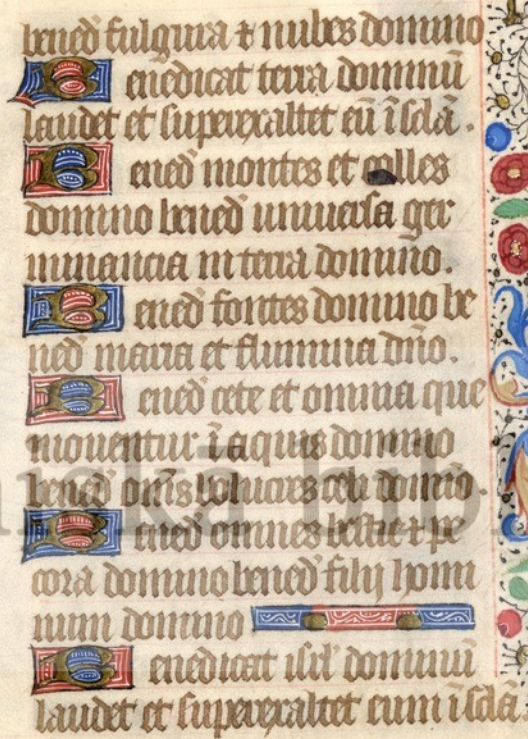 bened fulgura ⁊ nubes domino
Benedicat terra dominū
laudet et superexaltet eū ī sclā.
Bened montes et colles
domino bened uniuersa ger
minancia in terra domino.
Bened fontes domino be
ned maria et flumina dño.
Bened cete et omnia que
mouentur ī aquis domino
bened oms̄ volucres celi domīo.
Bened omnes bestie ⁊ pe
cora domino bened filij homi
num domino
Benedicat isrl' dominū
laudet et superexaltet eum ī sclā